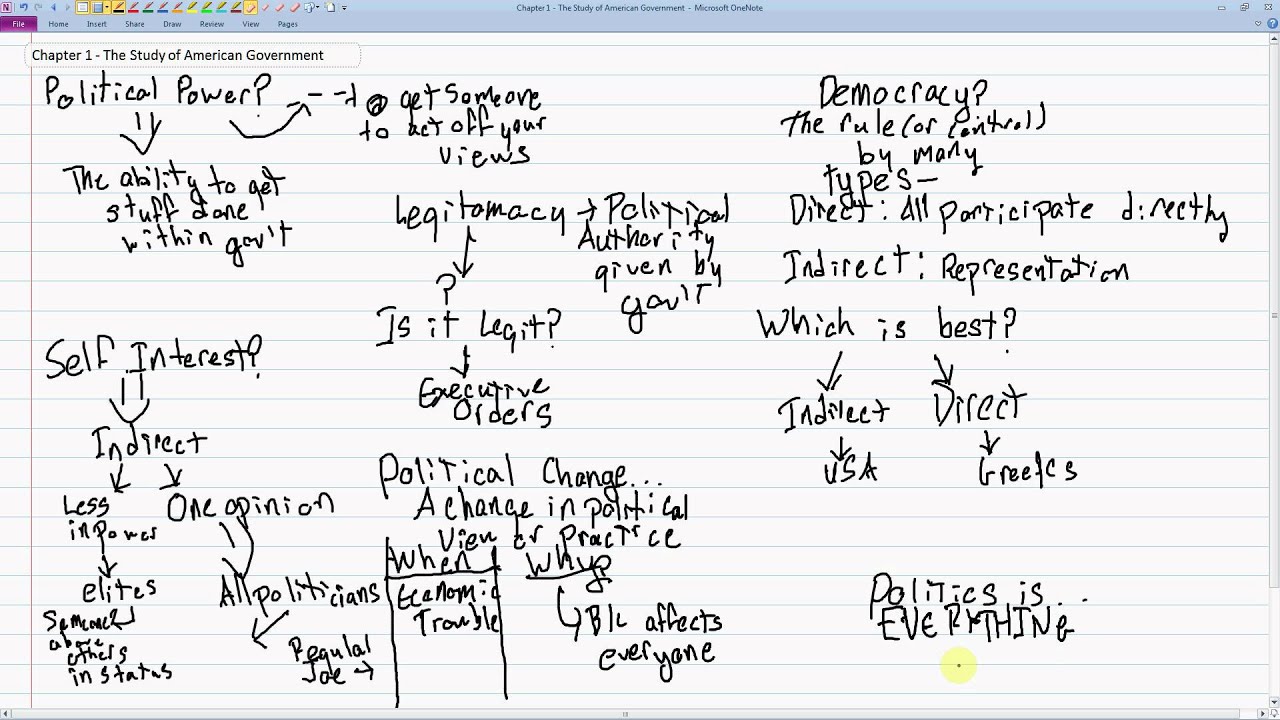 Chapter 1 - The Study of American Government - Microsoft OneNote
File Home Insert Share Draw Review View Pages
Chapter 1 - The Study of American Government
Political Power?
The ability to get
stuff done
within gov't
get someone
to act off your
views
Legitomacy → Political
Authority
given by
gov't
?
Is it Legit?
Executive
Orders
Self Interest?
Indirect
Less
in power
elites
Someone
above
others
in status
One opinion
All politicians
Regular
Joe →
Political Change...
A change in political
View or Practice
When
Economic
Trouble
Why?
B/c affects
everyone
Democracy?
The rule (or control)
by many
types-
Direct: All participate directly
Indirect: Representation
Which is best?
Indirect
USA
Direct
Politics is...
EVERYTHING